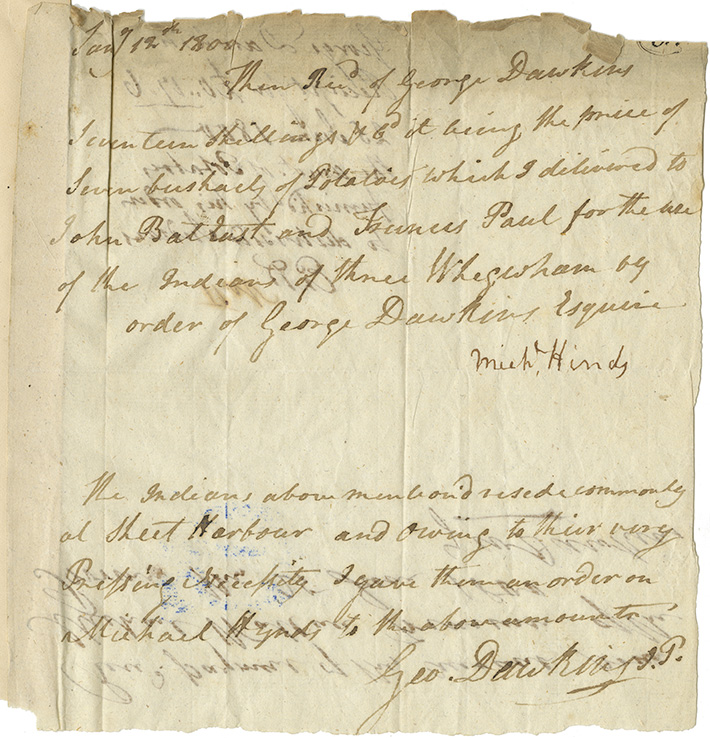 Jany 12th 1800
Then Recd of George Dawkins
Seventeen Shillings & 6d it being the price of
Seven bushaels of Potatoes which I delivered to
John Batlast and Francis Paul for the use
of the Indians of three Whegwham by
order of George Dawkins Esquire
Michl. Hinds
the Indians above mention'd resede commonly
at Sheet Harbour and owing to their very
Pressing Necessity I gave them an order on
Michael Hynds to the above amount
Geo. Dawkins J.P.